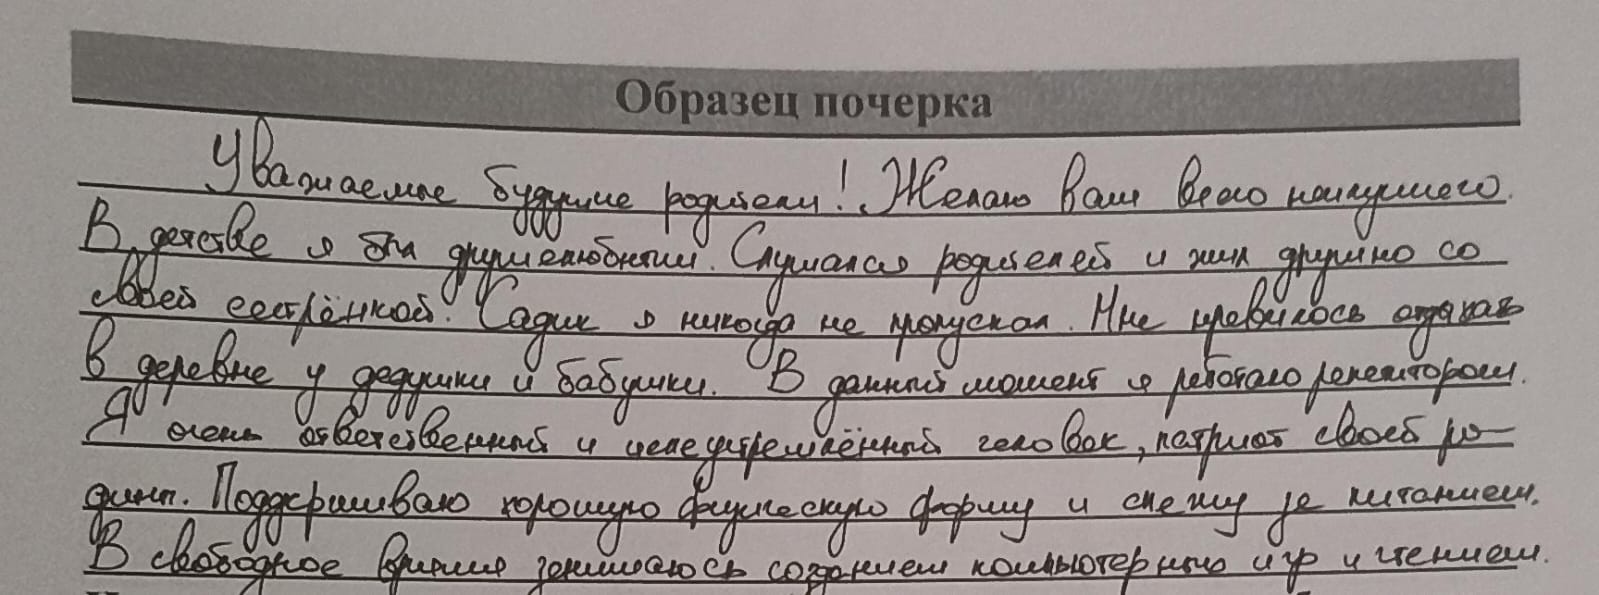 Образец почерка
Уважаемые будущие родители! Желаю вам всего наилучшего.
В детстве я был дружелюбным. Слушался родителей и жил дружно со
своей сестрёнкой. Садик я никогда не пропускал. Мне нравилось отдыхать
в деревне у дедушки и бабушки. В данный момент я работаю репетитором.
Я очень ответственный и целеустремлённый человек, патриот своей ро-
дины. Поддерживаю хорошую физическую форму и слежу за питанием.
В свободное время занимаюсь созданием компьютерных игр и чтением.